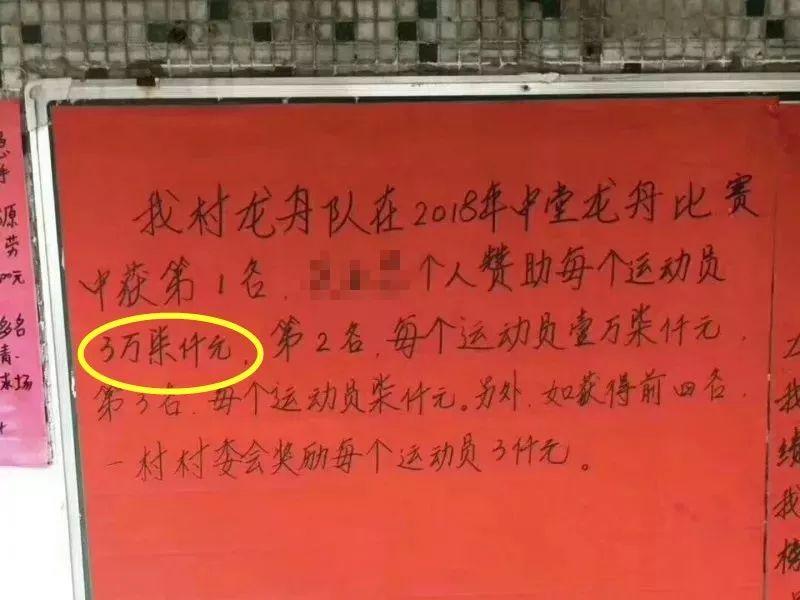 我村龙舟队在2018年中堂龙舟比赛
中获第1名, 个人赞助每个运动员
3万柒仟元,第2名,每个运动员壹万柒仟元,
第3名,每个运动员柒仟元。另外,如获得前四名,
一村村委会奖励每个运动员3仟元。
源
劳
00元
多名
青.
球场
我
绩
我
榜